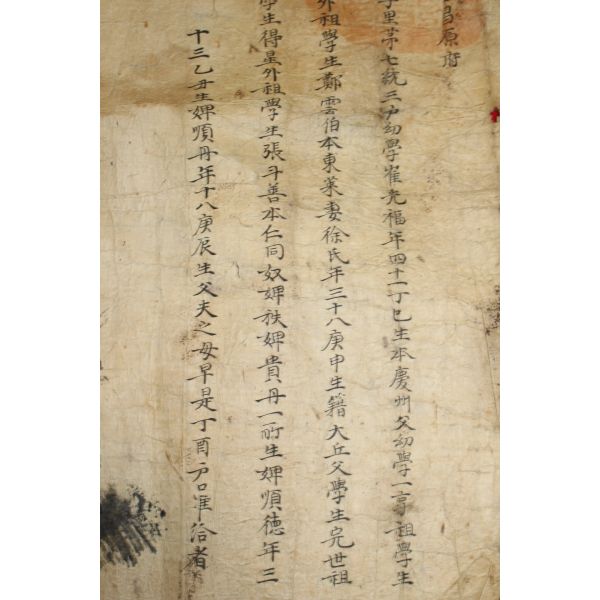 昌原府
里苐七統三戶幼學崔光福年四十一丁巳生本慶州父幼學一亨祖學生
外祖學生鄭雲伯本東萊妻徐氏年三十八庚申生籍大丘父學生完世祖
學生得星外祖學生張斗善本仁同奴婢秩婢貴丹一所生婢順德年三
十三乙丑生婢順丹年十八庚辰生父夫之母早是丁酉戶口准給者